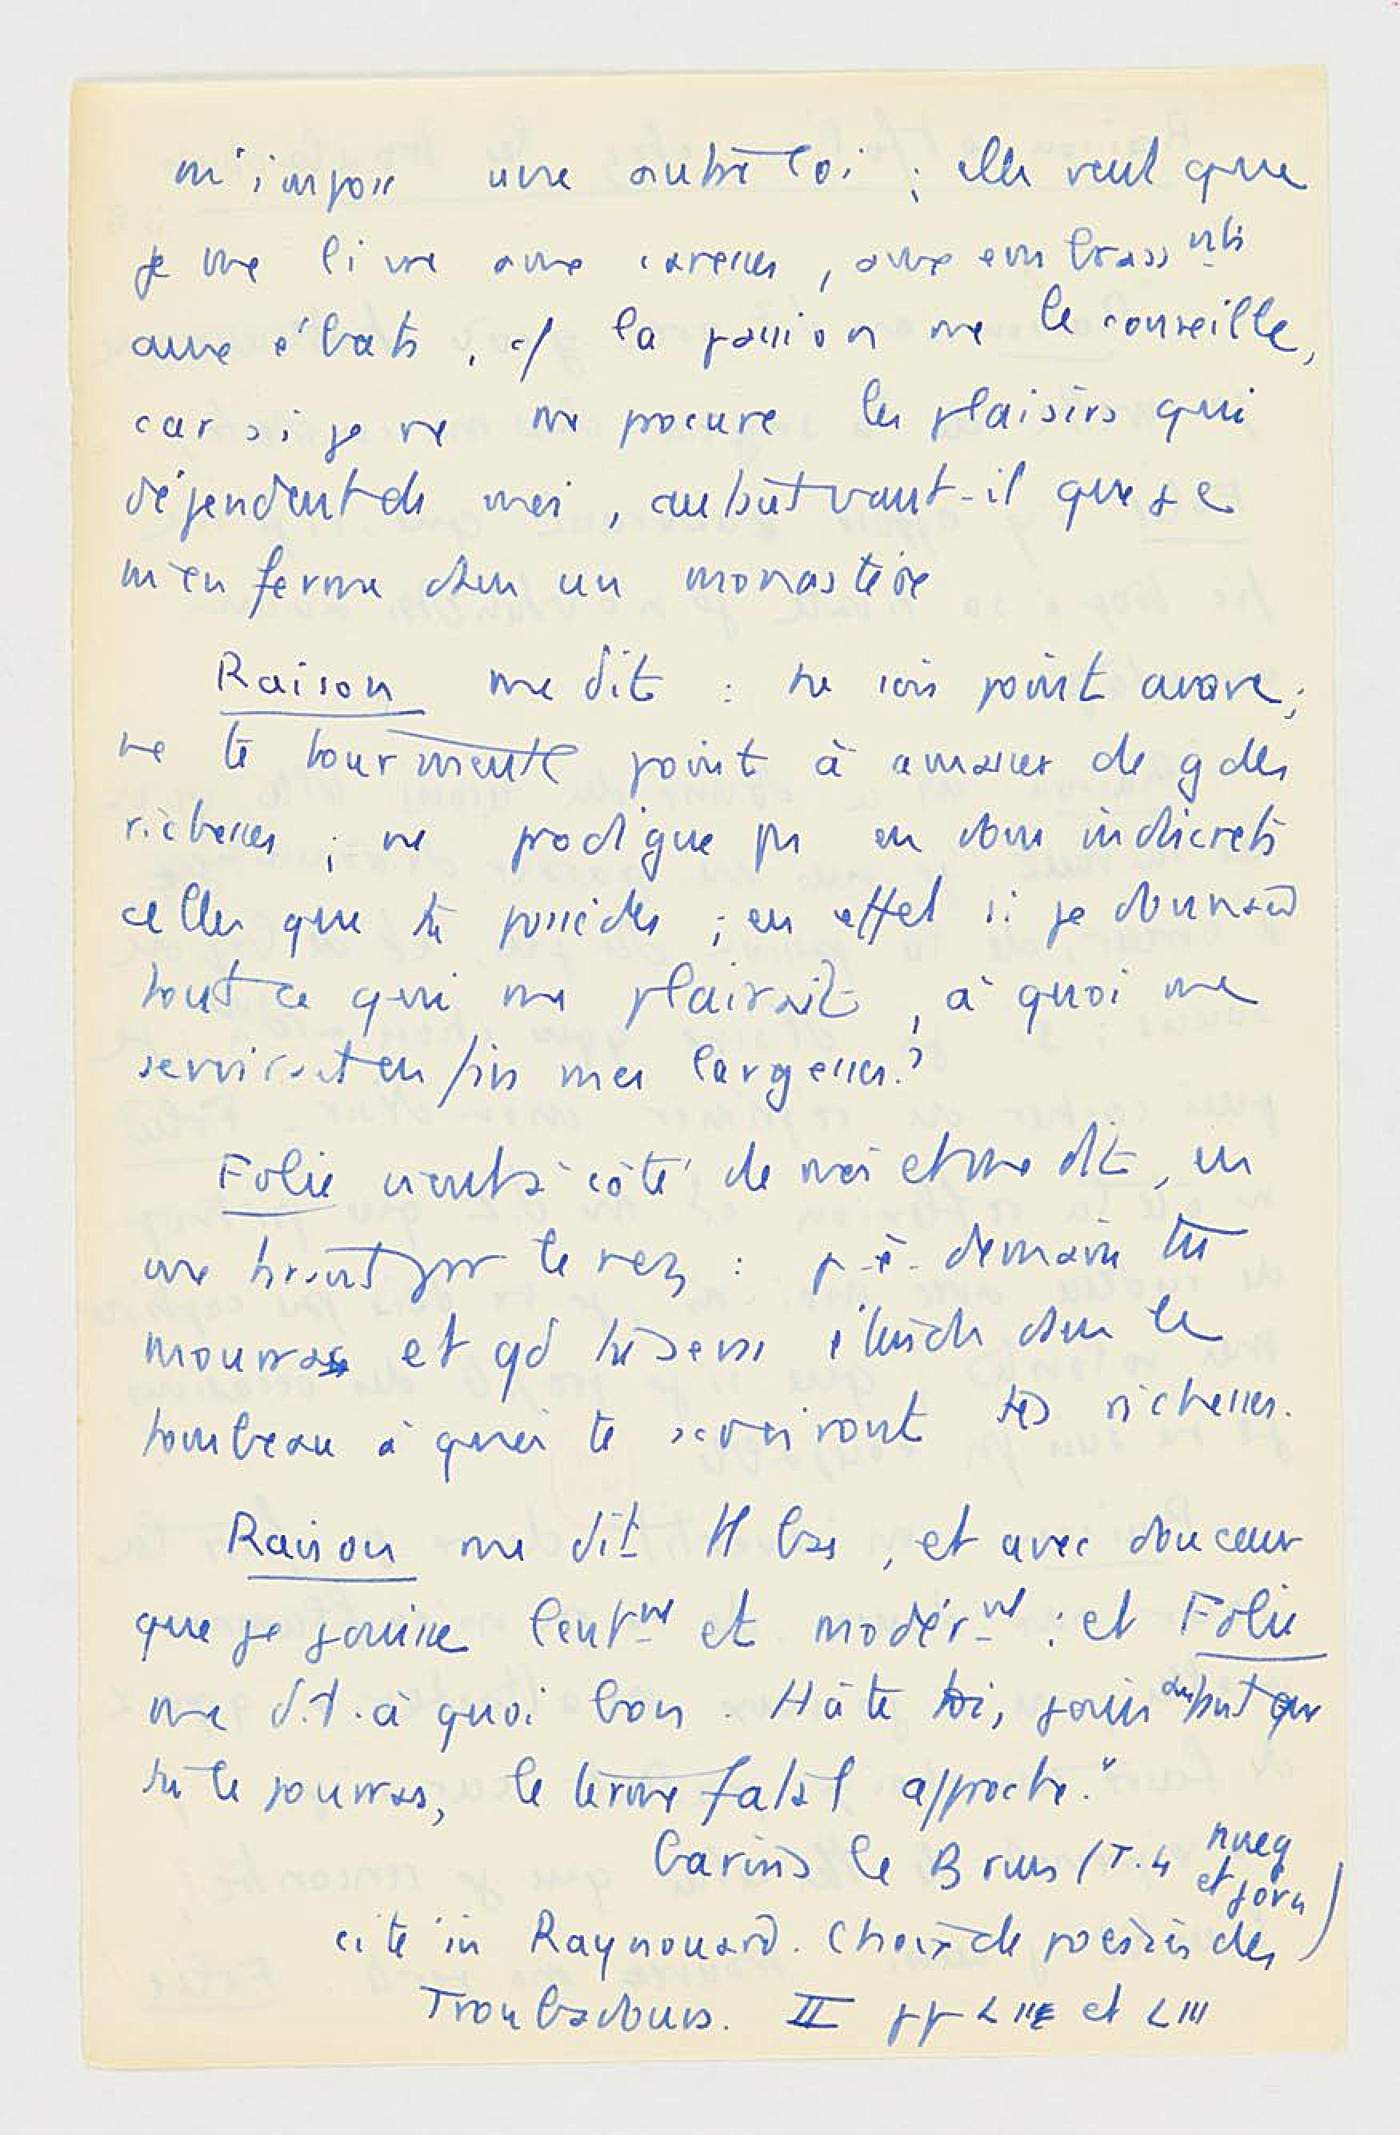 m'impose une autre loi ; elle veut que
je me livre aux caresses, aux embrassmts
aux ébats, c/ la passion me le conseille,
car si je ne me procure les plaisirs qui
dépendent de moi, autant vaut-il que je
m'enferme dans un monastère
Raison me dit : ne sois point avare ;
ne te tourmente point à amasser de gdes
richesses ; ne prodigue pas en dons indiscrets
celles que tu possèdes ; en effet si je donnais
tout ce qui me plairait, à quoi me
serviraient enfin mes largesses ?
Folie vient à côté de moi et me dit, en
me tirant par le nez : p.-ê. demain tu
mourras et qd tu seras étendu dans le
tombeau à quoi te serviront tes richesses.
Raison me dit tt bas, et avec douceur
que je jouisse lentmt et modérmt : et Folie
me dit à quoi bon. Hâte toi, jouis autant que
tu le pourras, le terme fatal approche."
Garins le Bruns (T. 4 nueg
et jorn)
cité in Raynouard. Choix de poésies des
Troubadours. II pp LII et LIII